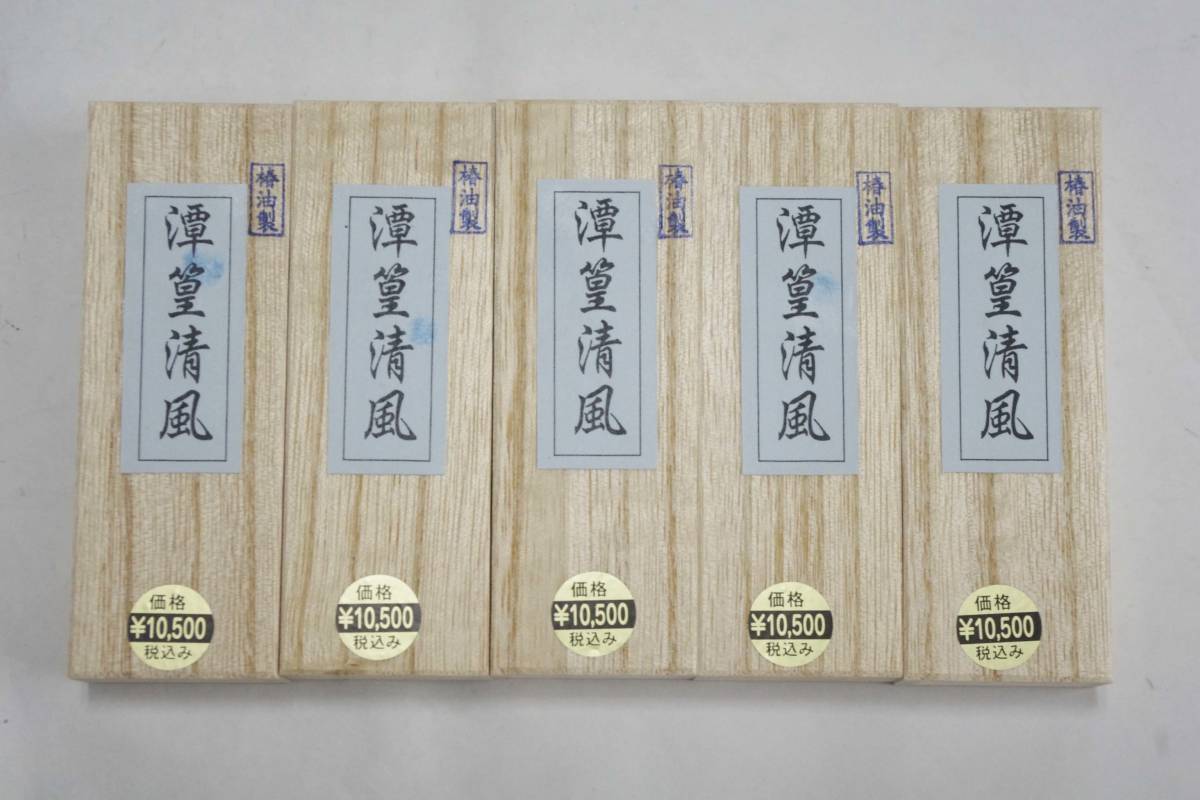 椿油製
潭篁清風
価格
¥10,500
税込み
椿油製
潭篁清風
価格
¥10,500
税込み
椿油製
潭篁清風
価格
¥10,500
税込み
椿油製
潭篁清風
価格
¥10,500
税込み
椿油製
潭篁清風
価格
¥10,500
税込み